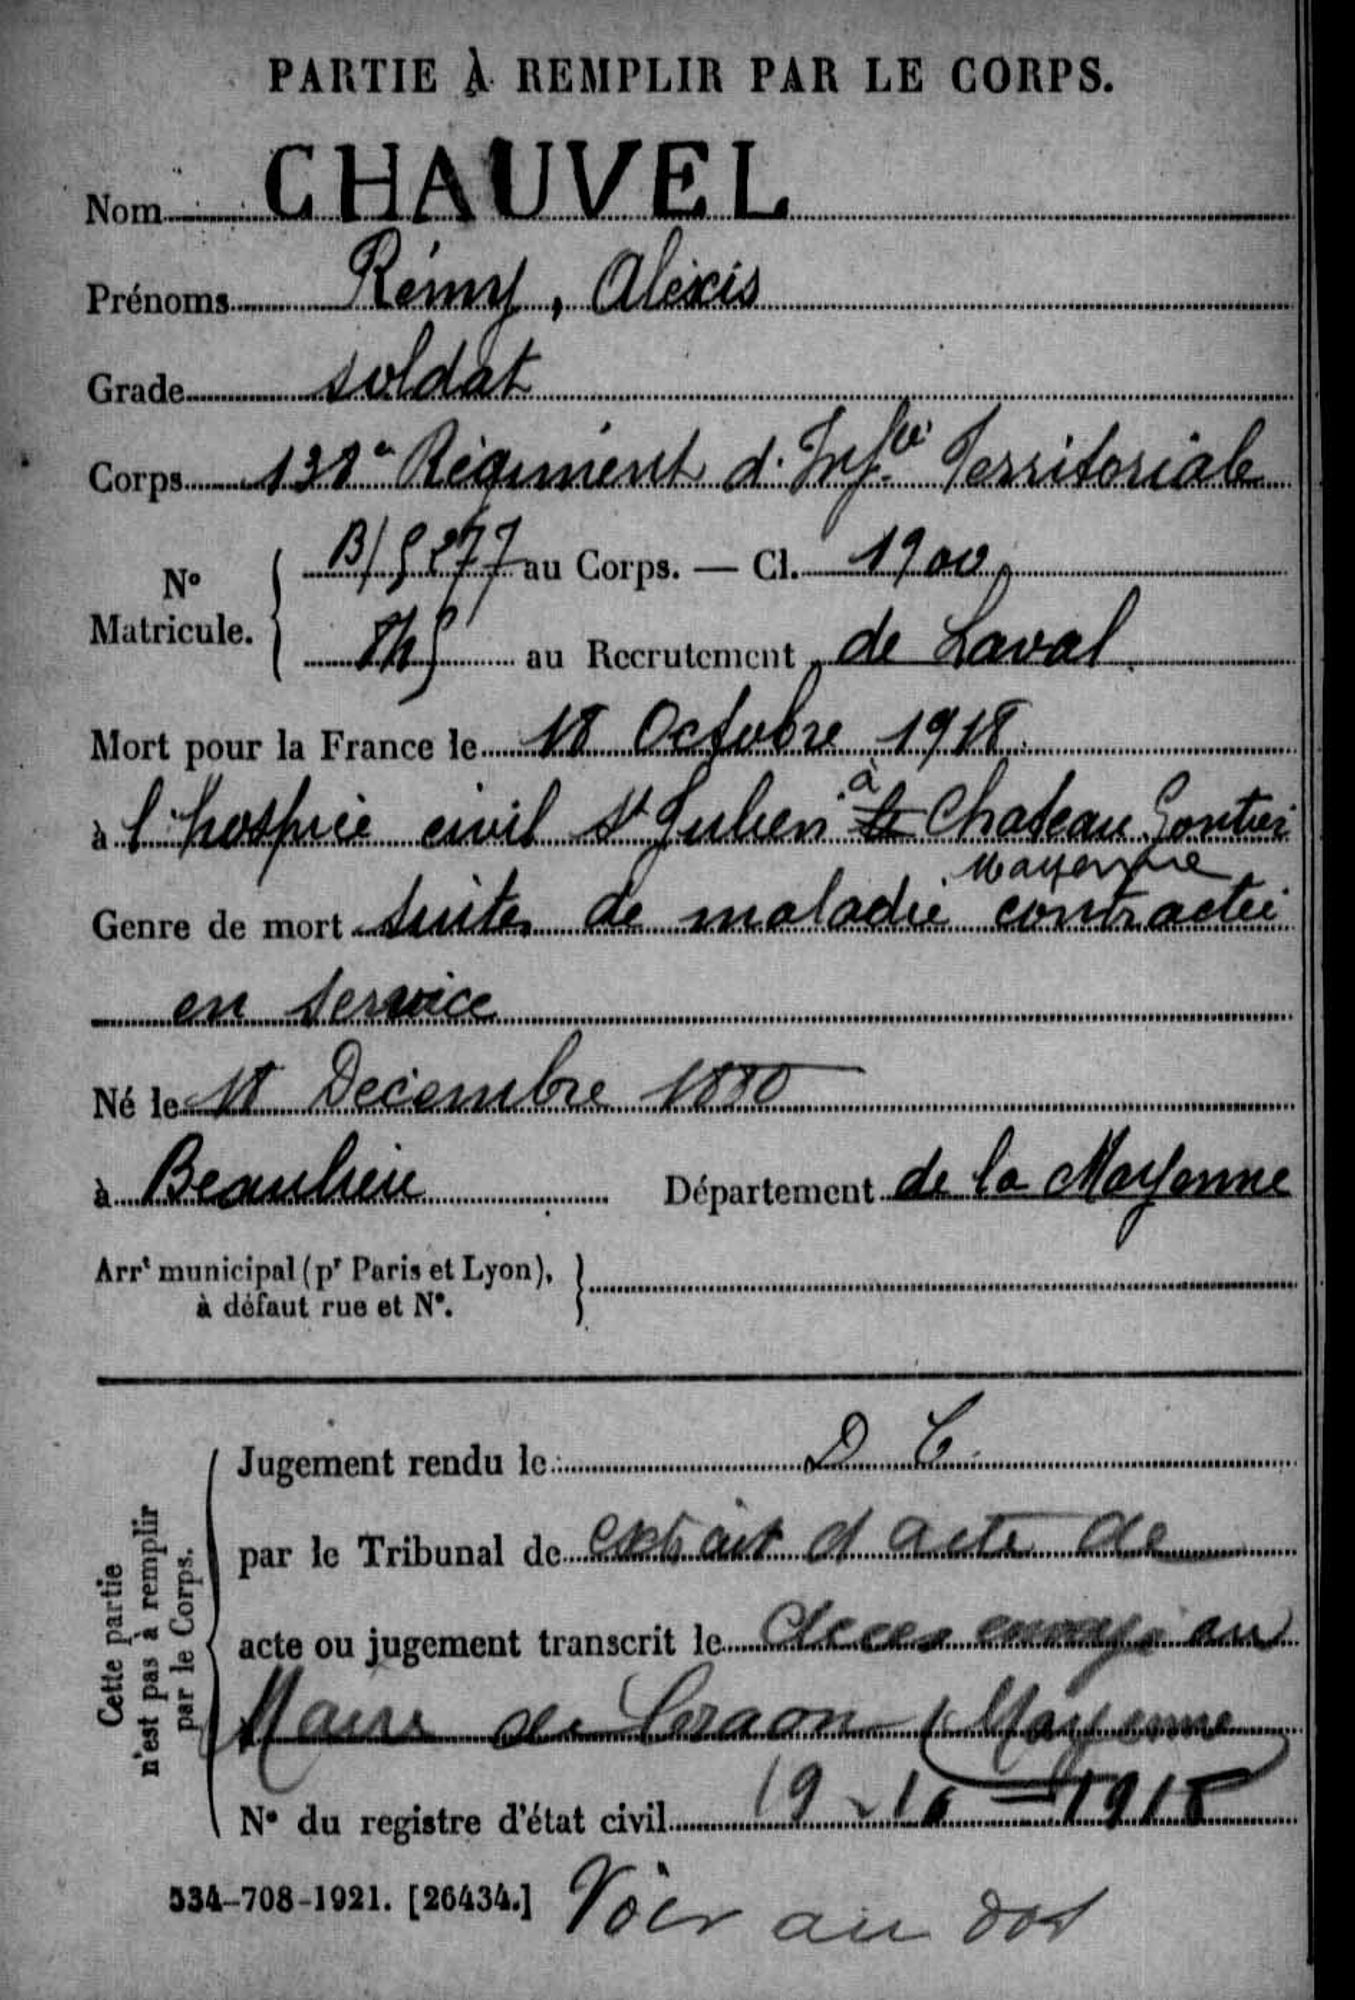 PARTIE À REMPLIR PAR LE CORPS.
Nom CHAUVEL
Prénoms Rémy, Alexis
Grade soldat
Corps 138e Régiment d'Infie Territoriale
No Matricule. au Corps. — Cl. 1900
au Recrutement de Laval
Mort pour la France le 18 Octobre 1918
à l'hospice civil St Julien à Chateau Gontier
Mayenne
Genre de mort suites de maladie contractée
en service
Né le 18 Décembre 1880
à Beaulieu Département de la Mayenne
Arrt municipal (pr Paris et Lyon),
à défaut rue et No.
Cette partie
n'est pas à remplir
par le Corps.
Jugement rendu le D C
par le Tribunal de extrait d acte de
acte ou jugement transcrit le deces envoye au
Maire de Craon (Mayenne)
No du registre d'état civil 19-10-1918
534-708-1921. [26434.] Voir au dos